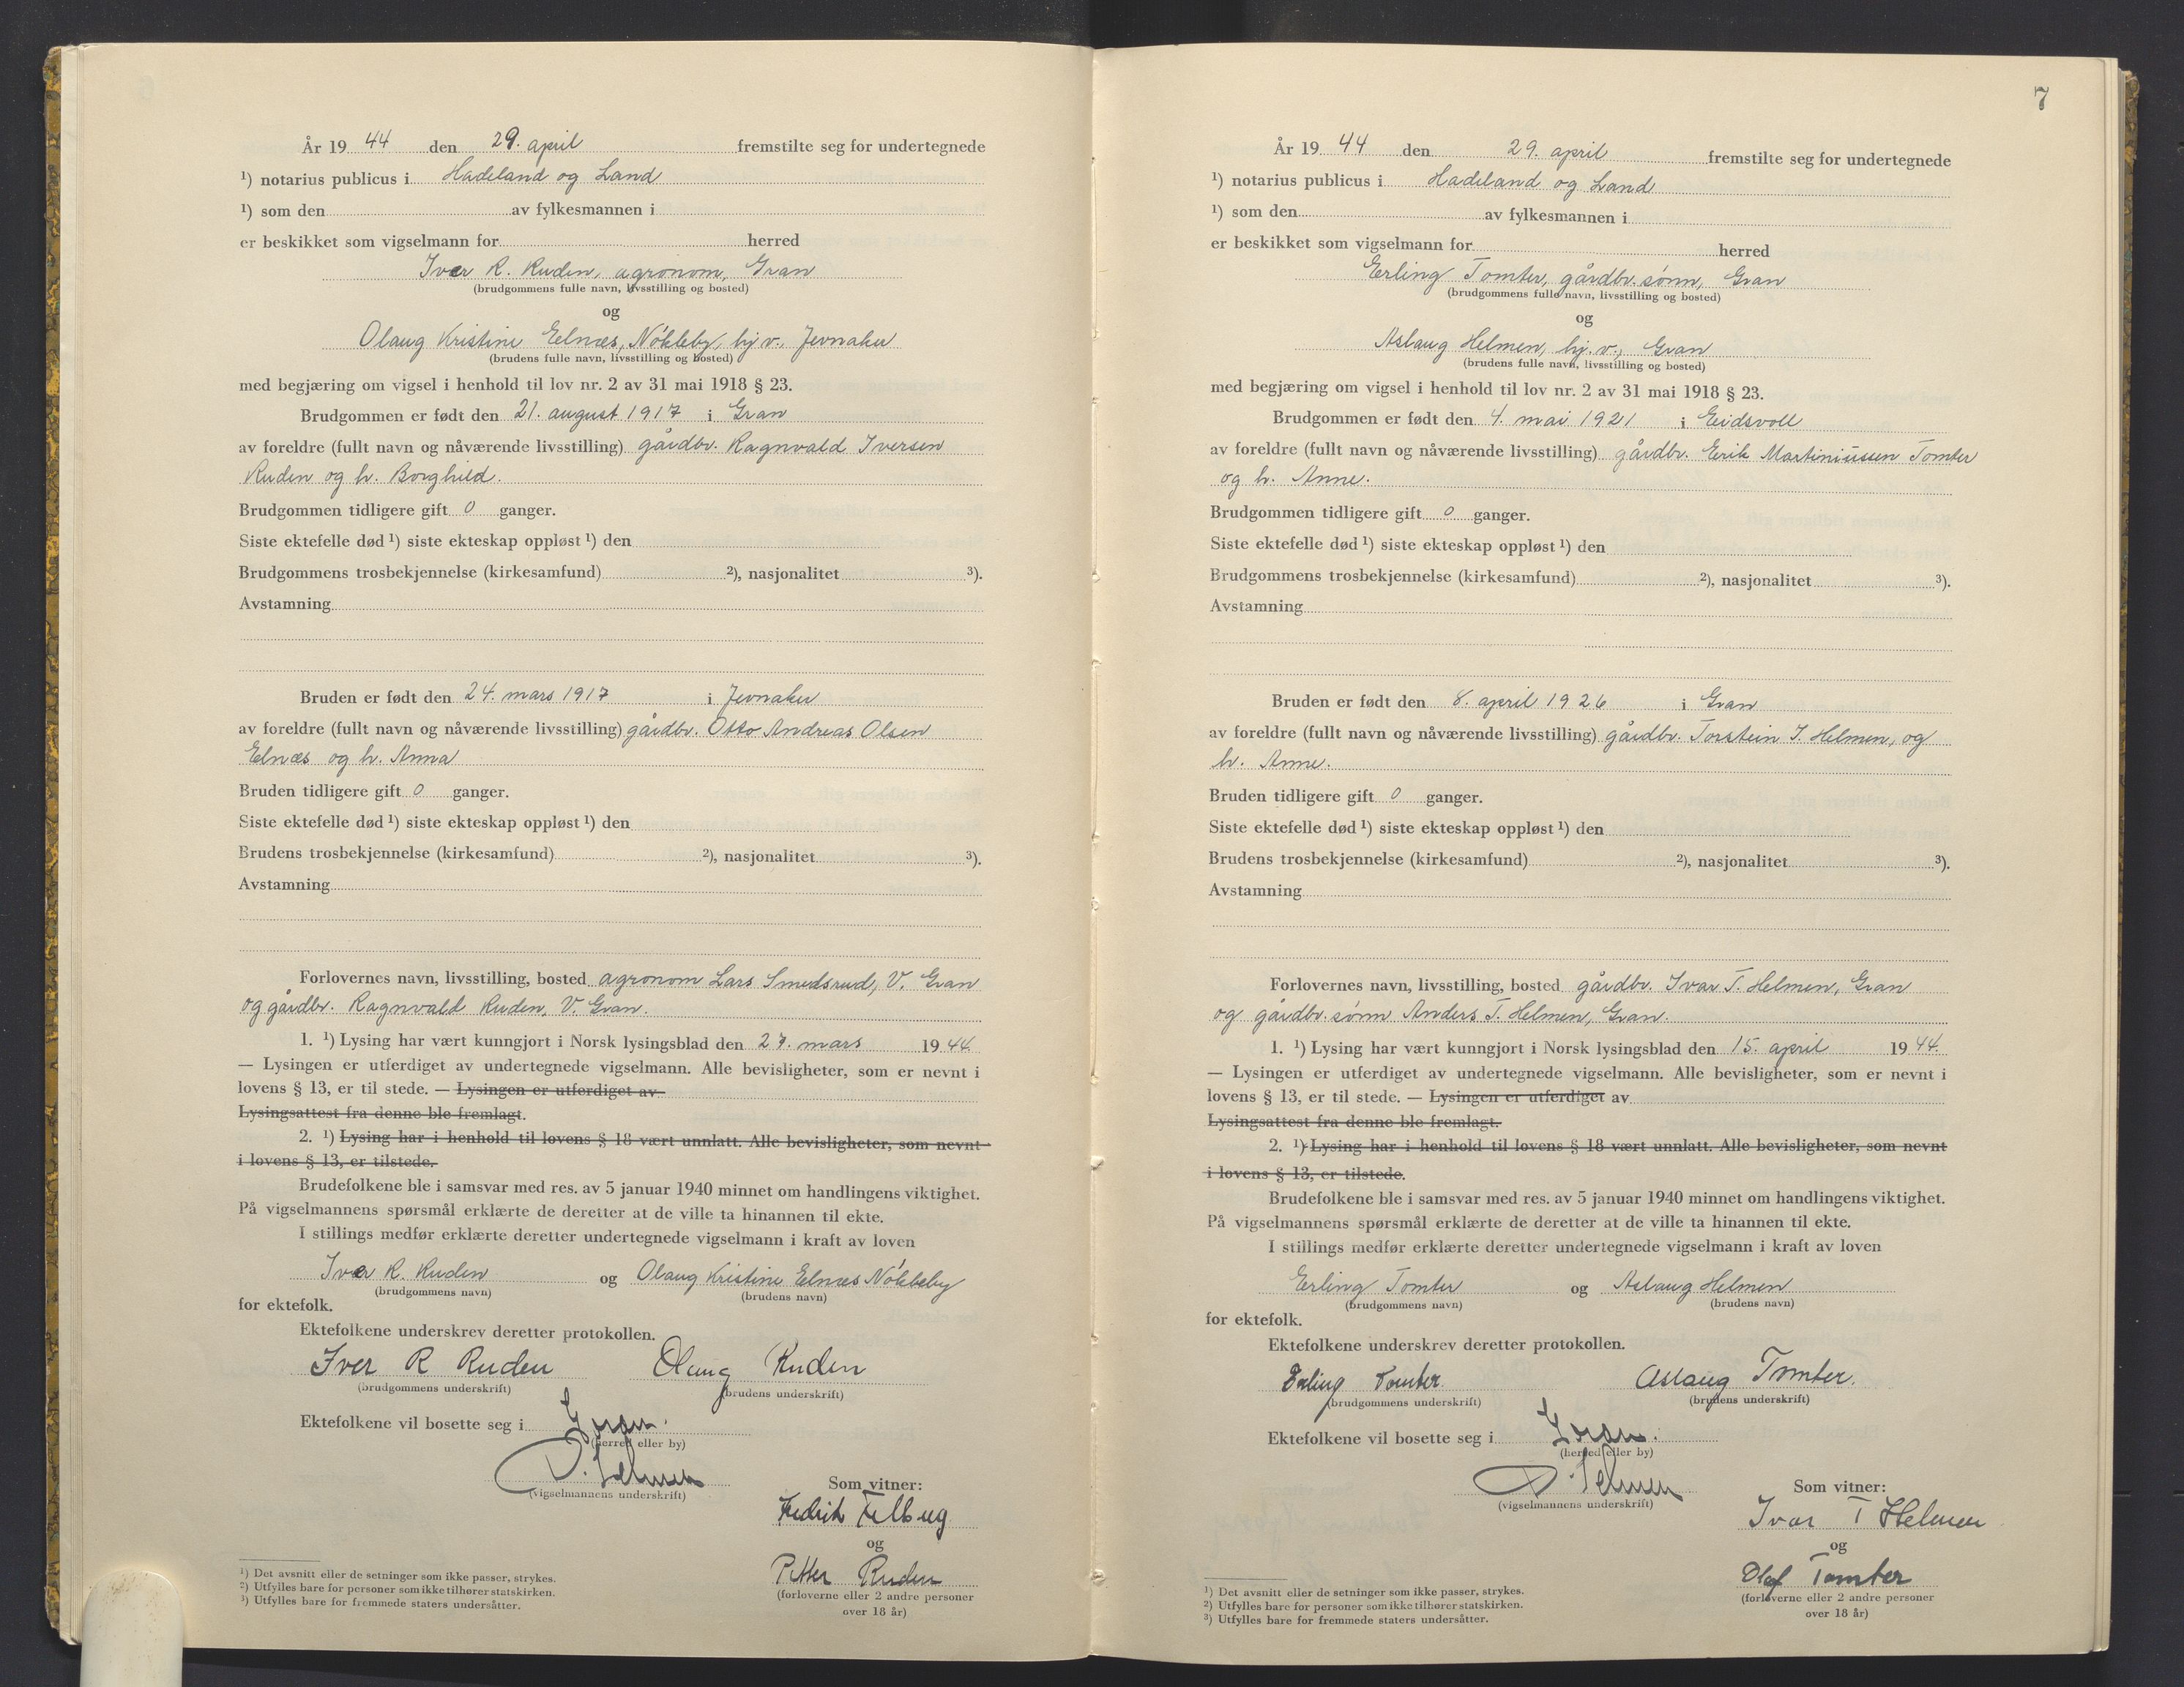 År 19 44 den 29. april fremstilte seg for undertegnede
¹) notarius publicus i Hadeland og Land
¹) som den av fylkesmannen i
er beskikket som vigselmann for herred
Iver R. Ruden, agronom, Gran
(brudgommens fulle navn, livsstilling og bosted)
og
Olaug Kristine Eelnæs, Nökleby, hj.v., Jevnaker
(brudens fulle navn, livsstilling og bosted)
med begjæring om vigsel i henhold til lov nr. 2 av 31 mai 1918 § 23.
Brudgommen er født den 21. august 1917 i Gran
av foreldre (fullt navn og nåværende livsstilling) gårdbr. Ragnvald Iversen
Ruden og h. Borghild.
Brudgommen tidligere gift 0 ganger.
Siste ektefelle død ¹) siste ekteskap oppløst ¹) den
Brudgommens trosbekjennelse (kirkesamfund) ²), nasjonalitet ³).
Avstamning
Bruden er født den 24. mars 1917 i Jevnaker
av foreldre (fullt navn og nåværende livsstilling) gårdbr. Otto Andreas Olsen
Elnæs og h. Anna
Bruden tidligere gift 0 ganger.
Siste ektefelle død ¹) siste ekteskap oppløst ¹) den
Brudens trosbekjennelse (kirkesamfund) ²), nasjonalitet ³).
Avstamning
Forlovernes navn, livsstilling, bosted agronom Lars Smedsrud, V. Gran
og gårdbr. Ragnvald Ruden, V. Gran.
1. ¹) Lysing har vært kunngjort i Norsk lysingsblad den 27. mars 19 44.
— Lysingen er utferdiget av undertegnede vigselmann. Alle bevisligheter, som er nevnt i
lovens § 13, er til stede. — Lysingen er utferdiget av
Lysingsattest fra denne ble fremlagt.
2. ¹) Lysing har i henhold til lovens § 18 vært unnlatt. Alle bevisligheter, som nevnt
i lovens § 13, er tilstede.
Brudefolkene ble i samsvar med res. av 5 januar 1940 minnet om handlingens viktighet.
På vigselmannens spørsmål erklærte de deretter at de ville ta hinannen til ekte.
I stillings medfør erklærte deretter undertegnede vigselmann i kraft av loven
Iver R. Ruden og Olaug Kristine Elnæs Nökleby
(brudgommens navn) (brudens navn)
for ektefolk.
Ektefolkene underskrev deretter protokollen.
Iver R Ruden Olaug Ruden
(brudgommens underskrift) (brudens underskrift)
Ektefolkene vil bosette seg i Gran.
(herred eller by)
(vigselmannens underskrift)
Som vitner:
Fredrik
og
Petter Ruden
(forloverne eller 2 andre personer
over 18 år)
¹) Det avsnitt eller de setninger som ikke passer, strykes.
²) Utfylles bare for personer som ikke tilhører statskirken.
³) Utfylles bare for fremmede staters undersåtter.
7
År 19 44 den 29. april fremstilte seg for undertegnede
¹) notarius publicus i Hadeland og Land
¹) som den av fylkesmannen i
er beskikket som vigselmann for herred
Erling Tomter, gårdbr.sönn, Gran
(brudgommens fulle navn, livsstilling og bosted)
og
Aslaug Helmen, hj.v., Gran
(brudens fulle navn, livsstilling og bosted)
med begjæring om vigsel i henhold til lov nr. 2 av 31 mai 1918 § 23.
Brudgommen er født den 4. mai 1921 i Eidsvoll
av foreldre (fullt navn og nåværende livsstilling) gårdbr. Erik Martiniussen Tomter
og h. Anne.
Brudgommen tidligere gift 0 ganger.
Siste ektefelle død ¹) siste ekteskap oppløst ¹) den
Brudgommens trosbekjennelse (kirkesamfund) ²), nasjonalitet ³).
Avstamning
Bruden er født den 8. april 1926 i Gran
av foreldre (fullt navn og nåværende livsstilling) gårdbr. Torstein I. Helmen, og
h. Anne.
Bruden tidligere gift 0 ganger.
Siste ektefelle død ¹) siste ekteskap oppløst ¹) den
Brudens trosbekjennelse (kirkesamfund) ²), nasjonalitet ³).
Avstamning
Forlovernes navn, livsstilling, bosted gårdbr. Ivar T. Helmen, Gran
og gårdbr.sönn Anders T. Helmen, Gran.
1. ¹) Lysing har vært kunngjort i Norsk lysingsblad den 15. april 19 44.
— Lysingen er utferdiget av undertegnede vigselmann. Alle bevisligheter, som er nevnt i
lovens § 13, er til stede. — Lysingen er utferdiget av
Lysingsattest fra denne ble fremlagt.
2. ¹) Lysing har i henhold til lovens § 18 vært unnlatt. Alle bevisligheter, som nevnt
i lovens § 13, er tilstede.
Brudefolkene ble i samsvar med res. av 5 januar 1940 minnet om handlingens viktighet.
På vigselmannens spørsmål erklærte de deretter at de ville ta hinannen til ekte.
I stillings medfør erklærte deretter undertegnede vigselmann i kraft av loven
Erling Tomter og Aslaug Helmen
(brudgommens navn) (brudens navn)
for ektefolk.
Ektefolkene underskrev deretter protokollen.
Erling Tomter Aslaug Tomter.
(brudgommens underskrift) (brudens underskrift)
Ektefolkene vil bosette seg i Gran.
(herred eller by)
(vigselmannens underskrift)
Som vitner:
Ivar T Helmen
og
Olaf Tomter
(forloverne eller 2 andre personer
over 18 år)
¹) Det avsnitt eller de setninger som ikke passer, strykes.
²) Utfylles bare for personer som ikke tilhører statskirken.
³) Utfylles bare for fremmede staters undersåtter.